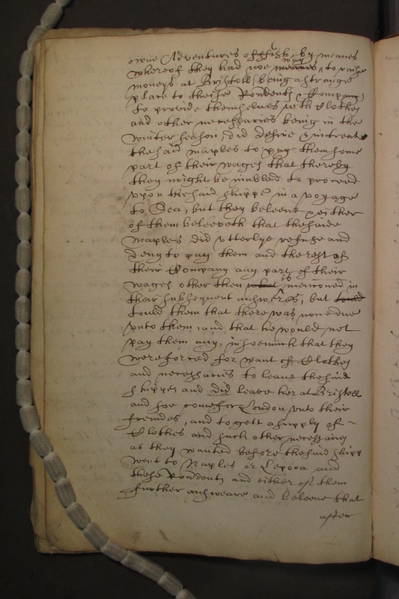 owne Adventures of ffish, by meanes
whereof they had noe meanes, to raise
moneys at Bristoll being a strange
place to theise Rendents & Company
to provide themselves with Clothes
and other necessaries being in the
winter season, did desire & intreate
the said Maples to pay them some
part of their wages that thereby
they might be inabled to proceed
upon the said shippe in a voyage
to Sea, but they beleeve & either
of them beleeveth that the said
Maples did utterlye refuse and
deny to pay them and the rest of
their Company any part of their
wages other then is menconed in
their subsequent answeres, but
tould them that there was none due
unto them, and that he would not
pay them any, insoemuch that they
were forced for want of Clothes
and necessaries to leave the said
shippe and did leave her at Bristoll
and soe come for London unto their
freindes, and to gett a supply of
Clothes and such other necessaries
as they wanted before the said shipp
went to Naples or Cepora and
theise Rendents and either of them
further answeare and beleeve that
after